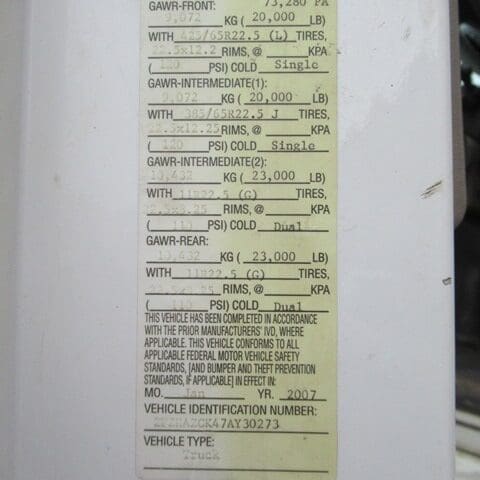 GAWR-FRONT: 73,280 PA
9,072 KG ( 20,000 LB)
WITH 425/65R22.5 (L) TIRES,
22.5x12.2 RIMS, @ KPA
( 120 PSI) COLD Single
GAWR-INTERMEDIATE(1):
9,072 KG ( 20,000 LB)
WITH 385/65R22.5 J TIRES,
22.5x12.25 RIMS, @ KPA
( 120 PSI) COLD Single
GAWR-INTERMEDIATE(2):
10,432 KG ( 23,000 LB)
WITH 11R22.5 (G) TIRES,
22.5x8.25 RIMS, @ KPA
( 110 PSI) COLD Dual
GAWR-REAR:
10,432 KG ( 23,000 LB)
WITH 11R22.5 (G) TIRES,
22.5x8.25 RIMS, @ KPA
( 110 PSI) COLD Dual
THIS VEHICLE HAS BEEN COMPLETED IN ACCORDANCE
WITH THE PRIOR MANUFACTURERS' IVD, WHERE
APPLICABLE. THIS VEHICLE CONFORMS TO ALL
APPLICABLE FEDERAL MOTOR VEHICLE SAFETY
STANDARDS, [AND BUMPER AND THEFT PREVENTION
STANDARDS, IF APPLICABLE] IN EFFECT IN:
MO. Jan YR. 2007
VEHICLE IDENTIFICATION NUMBER:
VEHICLE TYPE:
Truck